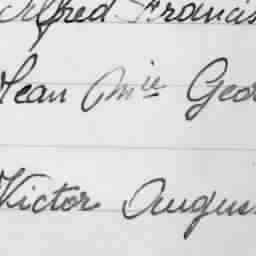 Alfred Francis
Jean Mie Geo
Victor Augus